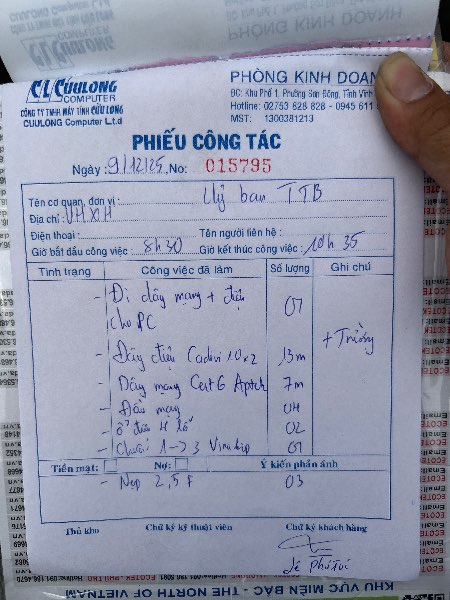 CL CỬU LONG
COMPUTER
CÔNG TY TNHH MÁY TÍNH CỬU LONG
CUULONG Computer L.t.d
PHÒNG KINH DOAN
ĐC: Khu Phố 1, Phường Sơn Đông, Tỉnh Vĩnh
Hotline: 02753 828 828 - 0945 611
MST: 1300381213
PHIẾU CÔNG TÁC
Ngày: 9/12/25 No: 015795
Tên cơ quan, đơn vị: Uỷ ban TTB
Địa chỉ: VHXH
Điện thoại: Tên người liên hệ:
Giờ bắt đầu công việc: 8h30 Giờ kết thúc công việc: 10h35
Tình trạng Công việc đã làm Số lượng Ghi chú
- Đi dây mạng + điện
cho PC 01
- Dây điện Cadivi 10x2 13m + Trường
- Dây mạng Cat 6 7m
- Đầu mạng 04
- ổ điện 4 lỗ 02
- 1 -> 3 01
Tiền mặt: Nợ: Ý kiến phản ánh
- Nẹp 2,5F 03
Thủ kho Chữ ký kỹ thuật viên Chữ ký khách hàng
KHU VỰC MIỀN BẮC - THE NORTH OF VIETNAM